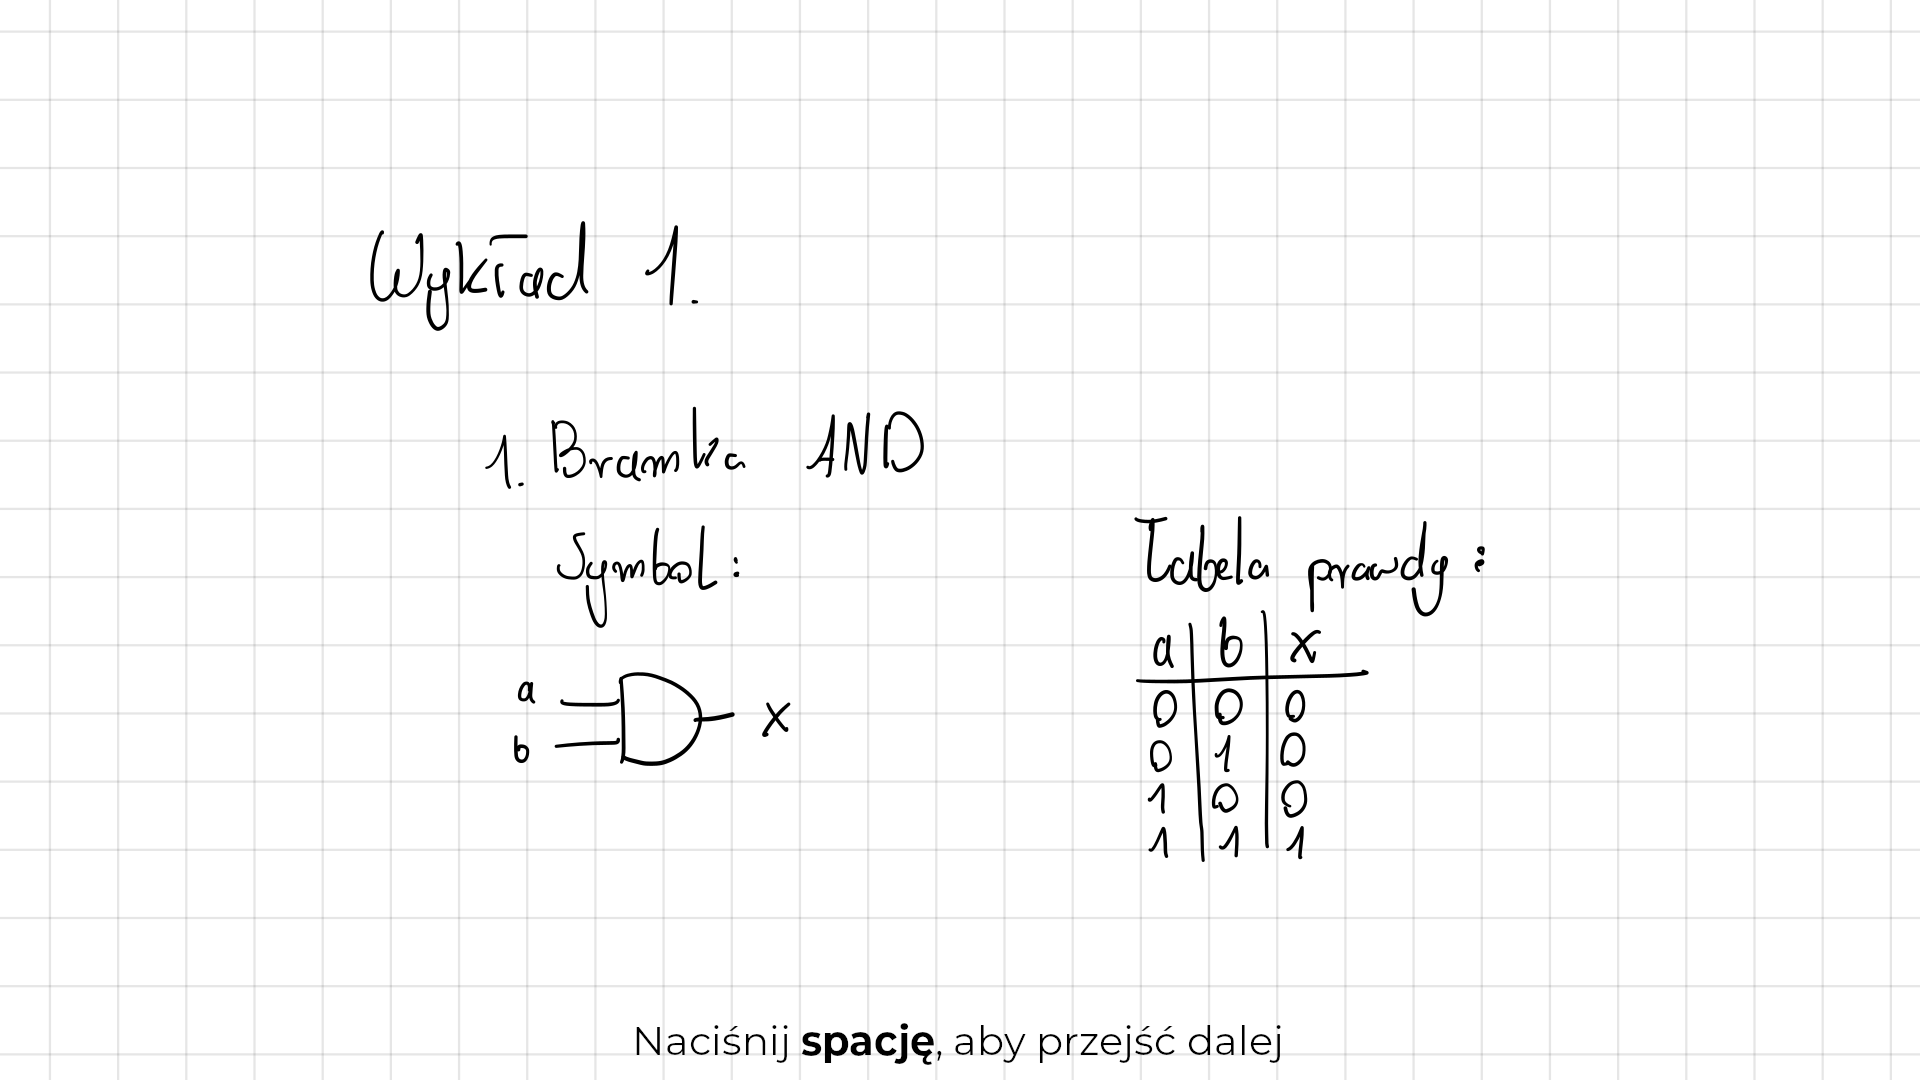 Wykład 1.
1. Bramka AND
Symbol:
a
b
x
Tabela prawdy:
a b x
0 0 0
0 1 0
1 0 0
1 1 1
Naciśnij spację, aby przejść dalej